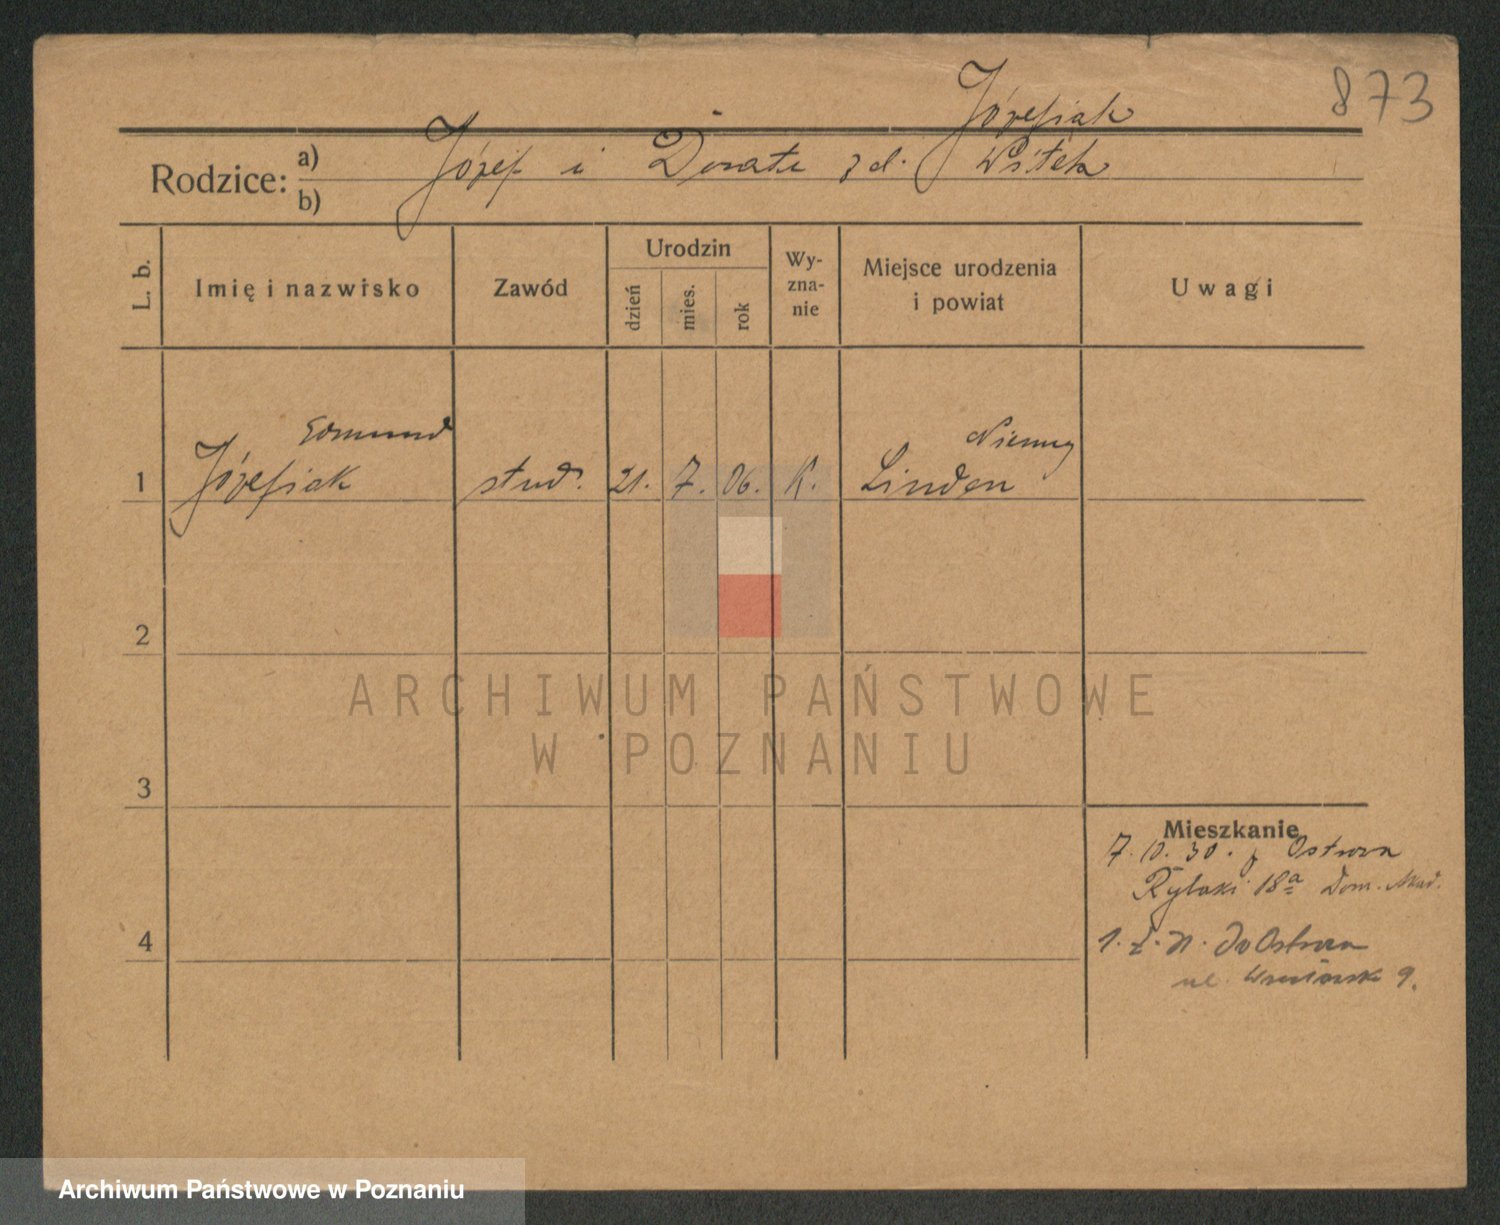 873
Józefiak
Rodzice: a) Józef i Dorota z d. Witek
b)
L. b.
Imię i nazwisko
Zawód
Urodzin
dzień
mies.
rok
Wy-
zna-
nie
Miejsce urodzenia
i powiat
Uwagi
Edmund
Niemcy
1 Józefiak stud. 21. 7. 06. K. Linden
2
3
4
ARCHIWUM PAŃSTWOWE
W POZNANIU
Mieszkanie
7. 10. 30. z Ostrowa
Rybaki 18a Dom. Akad.
do Ostrowa
ul. 9.
Archiwum Państwowe w Poznaniu